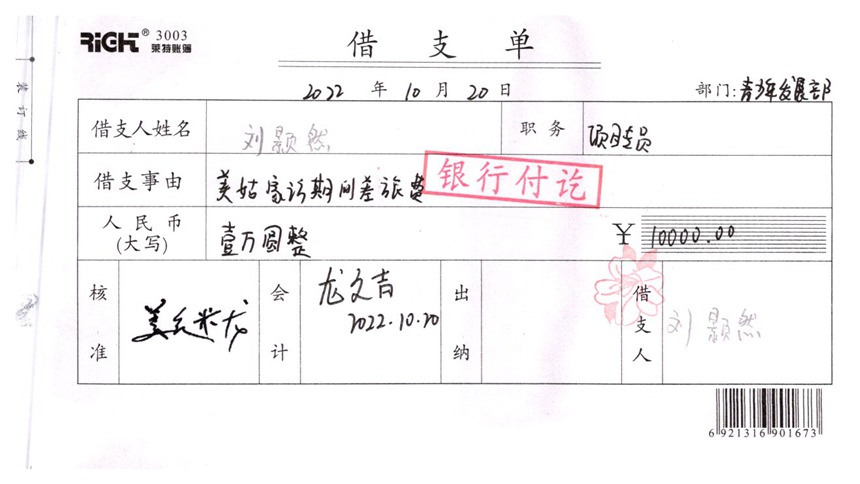 RiGHT® 3003
莱特账簿
借支单
2022 年 10 月 20 日 部门:青少年发展部
装订线
借支人姓名 刘颢然 职务 项目专员
借支事由 美姑家访期间差旅费
银行付讫
人民币(大写) 壹万圆整 ¥ 10000.00
核准 会计 龙文吉 出纳 借支人 刘颢然
2022.10.20
6 921316 901673